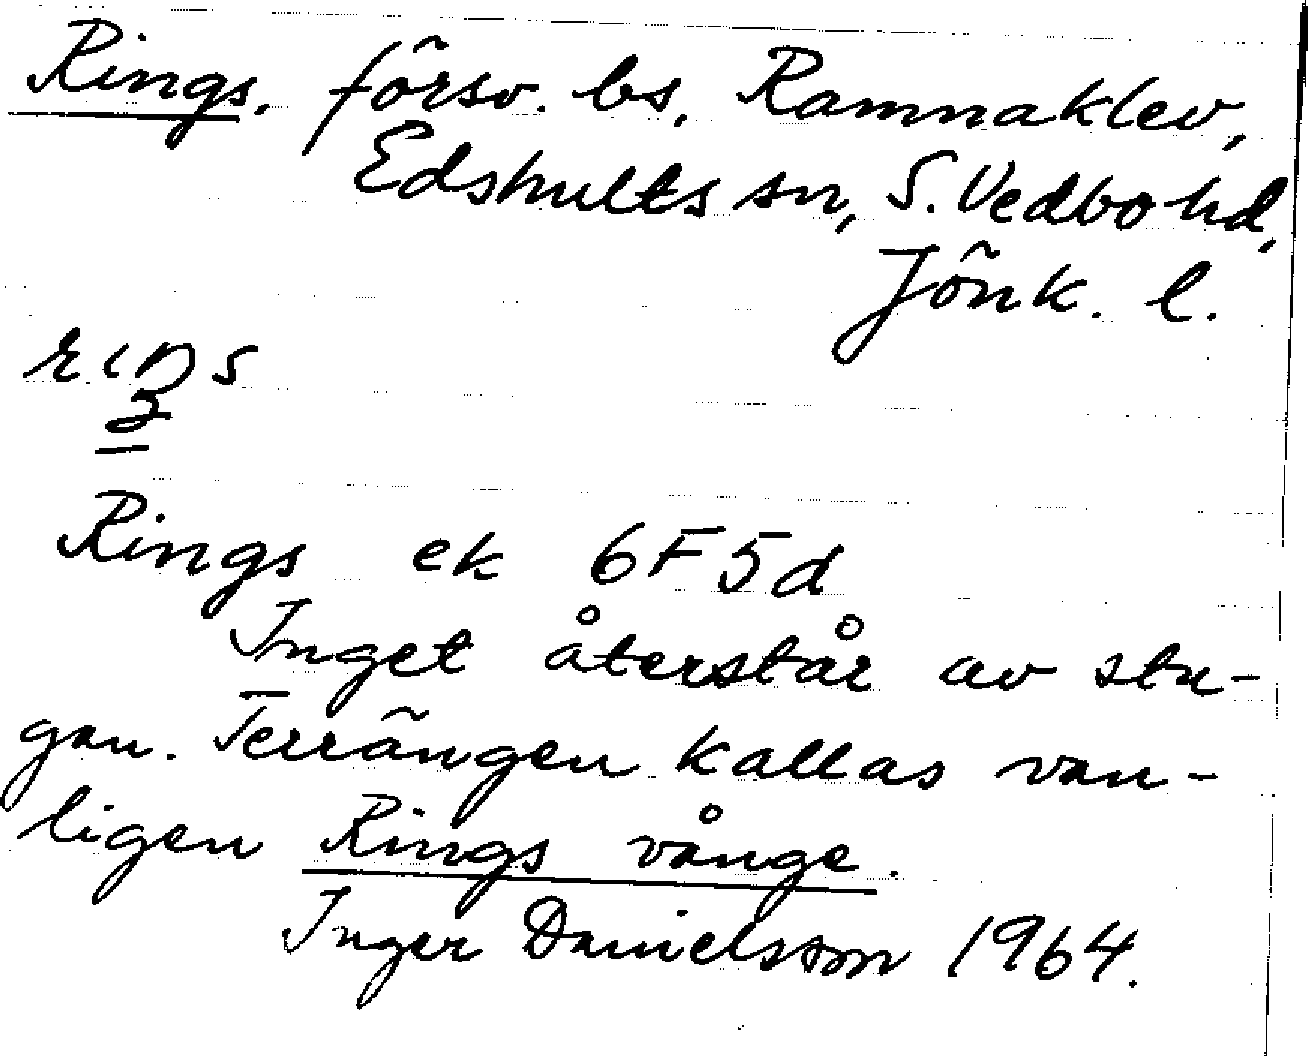 Rings, försv. bs, Ramnaklev,
Edshults sn, S. Vedbo hd,
Jönk. l.
Rings ek 6F5d
Inget återstår av stu-
gan. Terrängen kallas van-
ligen Rings vånge.
Inger Danielsson 1964.